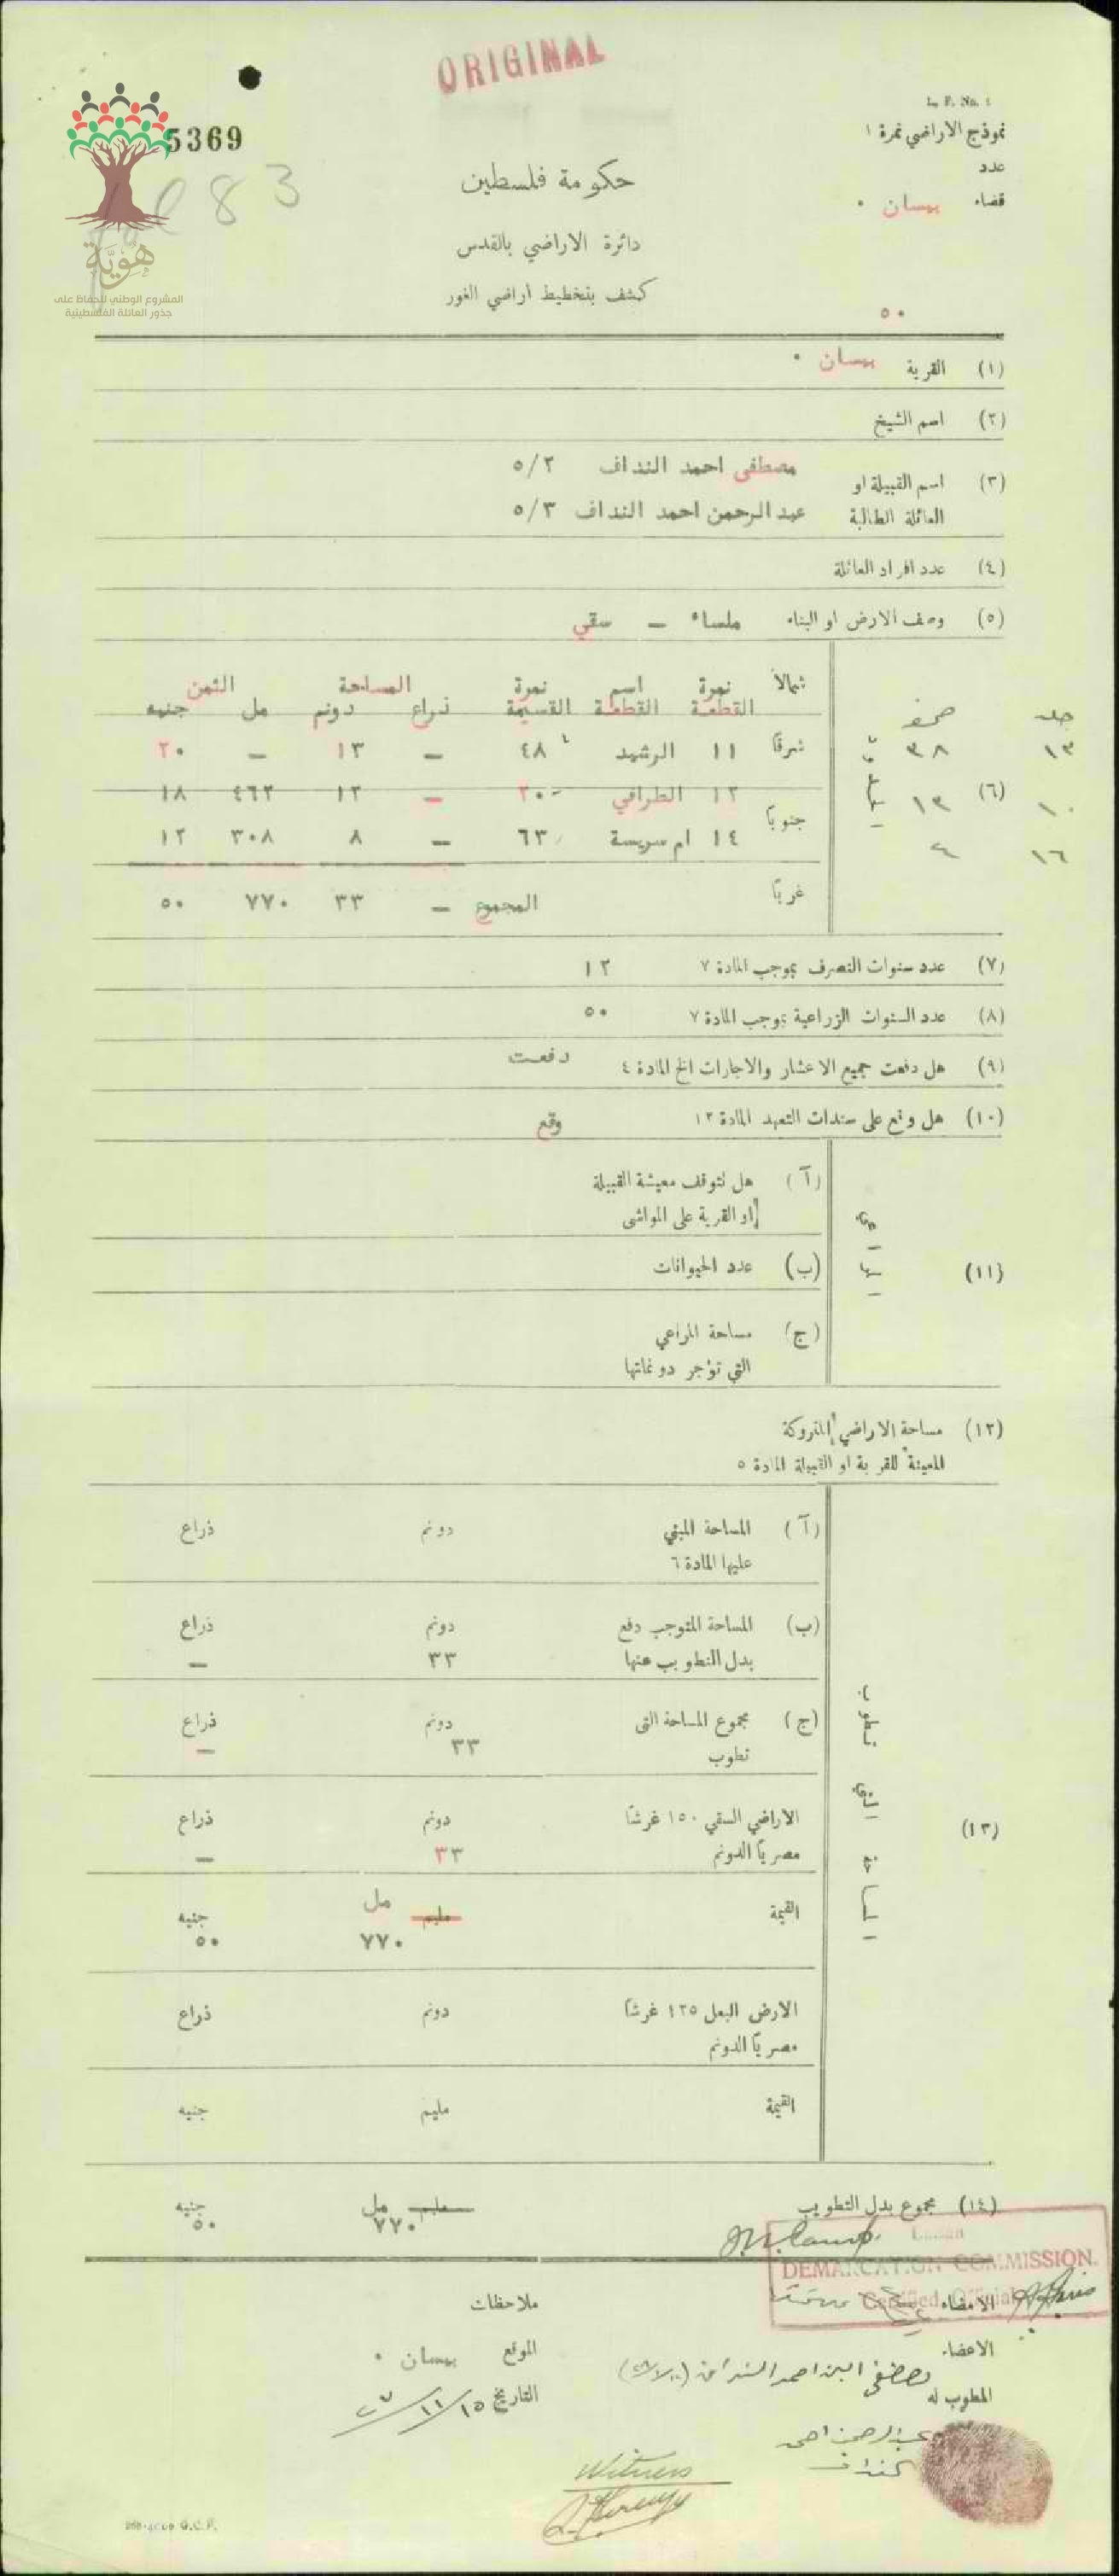 ORIGINAL
L. F. No. 1
5369
نموذج الاراضي نمرة ١
عدد
قضاء بيسان .
83
حكومة فلسطين
دائرة الاراضي بالقدس
كشف بتخطيط اراضي الغور
هوية
المشروع الوطني للحفاظ على
جذور العائلة الفلسطينية
٥٠
(١) القرية بيسان .
(٢) اسم الشيخ
(٣) اسم القبيلة او العائلة الطالبة
مصطفى احمد النداف ٥/٢
عبد الرحمن احمد النداف ٥/٣
(٤) عدد افراد العائلة
(٥) وصف الارض او البناء ملساء – سقي
(٦) الحدود
شمالاً
شرقاً
جنوباً
غرباً
نمرة القطعة اسم القطعة نمرة القسيمة المساحة ذراع دونم الثمن مل جنيه
جلد صحيفة
١٣ ٣٨ ١١ الرشيد ٤٨ – ١٣ – ٢٠
١٠ ١٣ ١٢ الطرافي ٢٠ – ١٢ ٤٦٢ ١٨
١٦ ٤ ١٤ ام سريسة ٦٣ – ٨ ٣٠٨ ١٢
المجموع – ٣٣ ٧٧٠ ٥٠
(٧) عدد سنوات التصرف بموجب المادة ٧ ١٢
(٨) عدد السنوات الزراعية بموجب المادة ٧ ٥٠
(٩) هل دفعت جميع الاعشار والاجارات الخ المادة ٤ دفعت
(١٠) هل وقع على سندات التعهد المادة ١٢ وقع
(١١) المراعي
(آ) هل تتوقف معيشة القبيلة
او القرية على المواشي
(ب) عدد الحيوانات
(ج) مساحة المراعي
التي تؤجر دونماتها
(١٢) مساحة الاراضي المتروكة
المعينة للقرية او القبيلة المادة ٥
(١٣) المساحة التي تطوب
(آ) المساحة المبني دونم ذراع
عليها المادة ٦
(ب) المساحة المتوجب دفع دونم ذراع
بدل التطويب عنها ٣٣ –
(ج) مجموع المساحة التي دونم ذراع
تطوب ٣٣ –
الاراضي السقي ١٥٠ غرشاً دونم ذراع
مصرياً الدونم ٣٣ –
القيمة مليم مل جنيه
٧٧٠ ٥٠
الارض البعل ١٢٥ غرشاً دونم ذراع
مصرياً الدونم
القيمة مليم جنيه
(١٤) مجموع بدل التطويب مليم مل جنيه
٧٧٠ ٥٠
DEMARCATION COMMISSION.
Certified Official
الامضاء
ملاحظات
الاعضاء
الموقع بيسان .
مصطفى ابن احمد النداف
المطوب له
التاريخ ١٥/١١/٢٧
عبد الرحمن احمد
النداف
Witness
G.C.P.